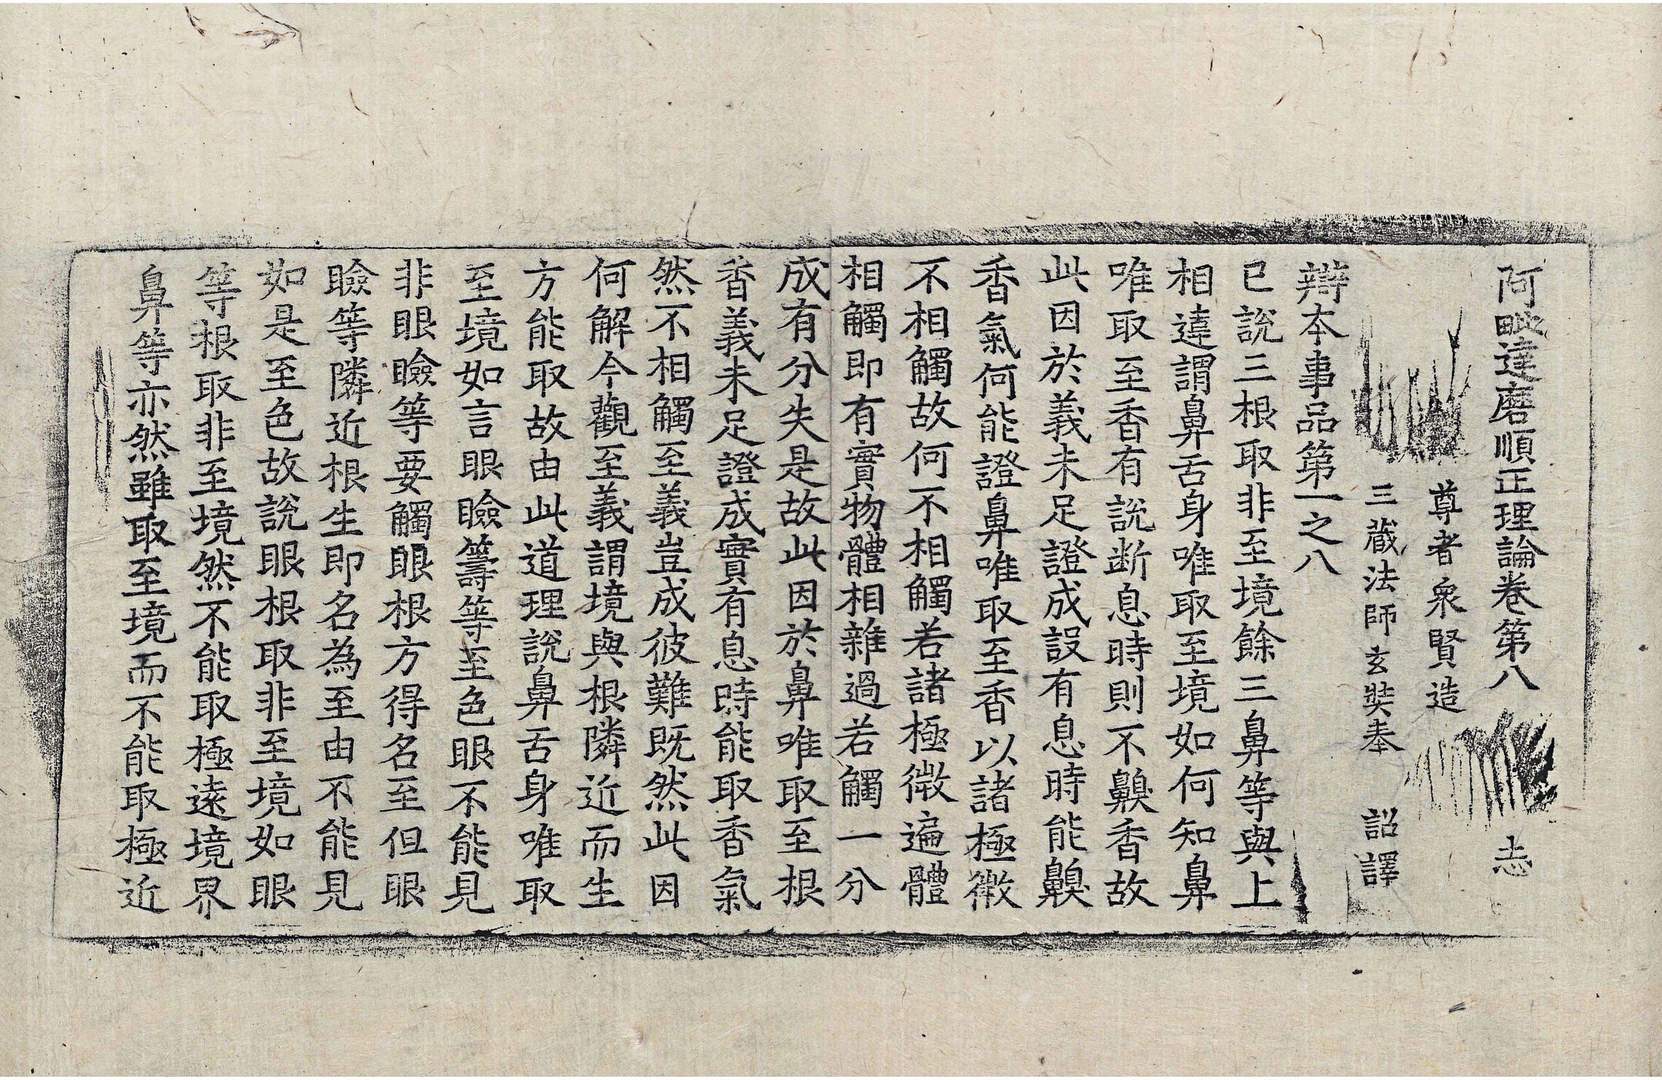 阿毗達磨順正理論卷第八 志
尊者衆賢造
三藏法師玄奘奉 詔譯
辯本事品第一之八
已說三根取非至境餘三鼻等與上
相違謂鼻舌身唯取至境如何知鼻
唯取至香有說斷息時則不齅香故
此因於義未足證成設有息時能齅
香氣何能證鼻唯取至香以諸極微
不相觸故何不相觸若諸極微遍體
相觸即有實物體相雜過若觸一分
成有分失是故此因於鼻唯取至根
香義未足證成實有息時能取香氣
然不相觸至義豈成彼難既然此因
何解今觀至義謂境與根隣近而生
方能取故由此道理說鼻舌身唯取
至境如言眼瞼籌等至色眼不能見
非眼瞼等要觸眼根方得名至但眼
瞼等隣近根生即名為至由不能見
如是至色故說眼根取非至境如眼
等根取非至境然不能取極遠境界
鼻等亦然雖取至境而不能取極近